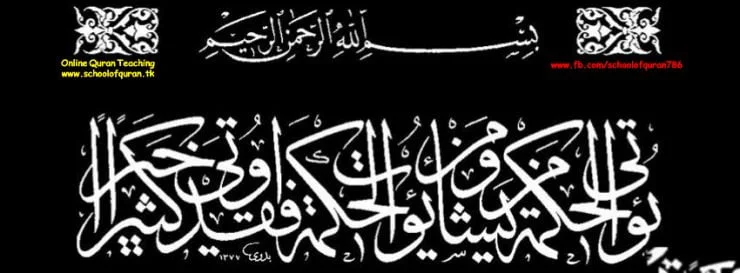 بِسْمِ اللهِ الرَّحْمٰنِ الرَّحِيْمِ
Online Quran Teaching
www.schoolofquran.tk
www.fb.com/schoolofquran786
يؤتى الحكمة من يشا ومن يؤت الحكمة فقد اوتى خيرًا كثيرًا
١٣٧٧